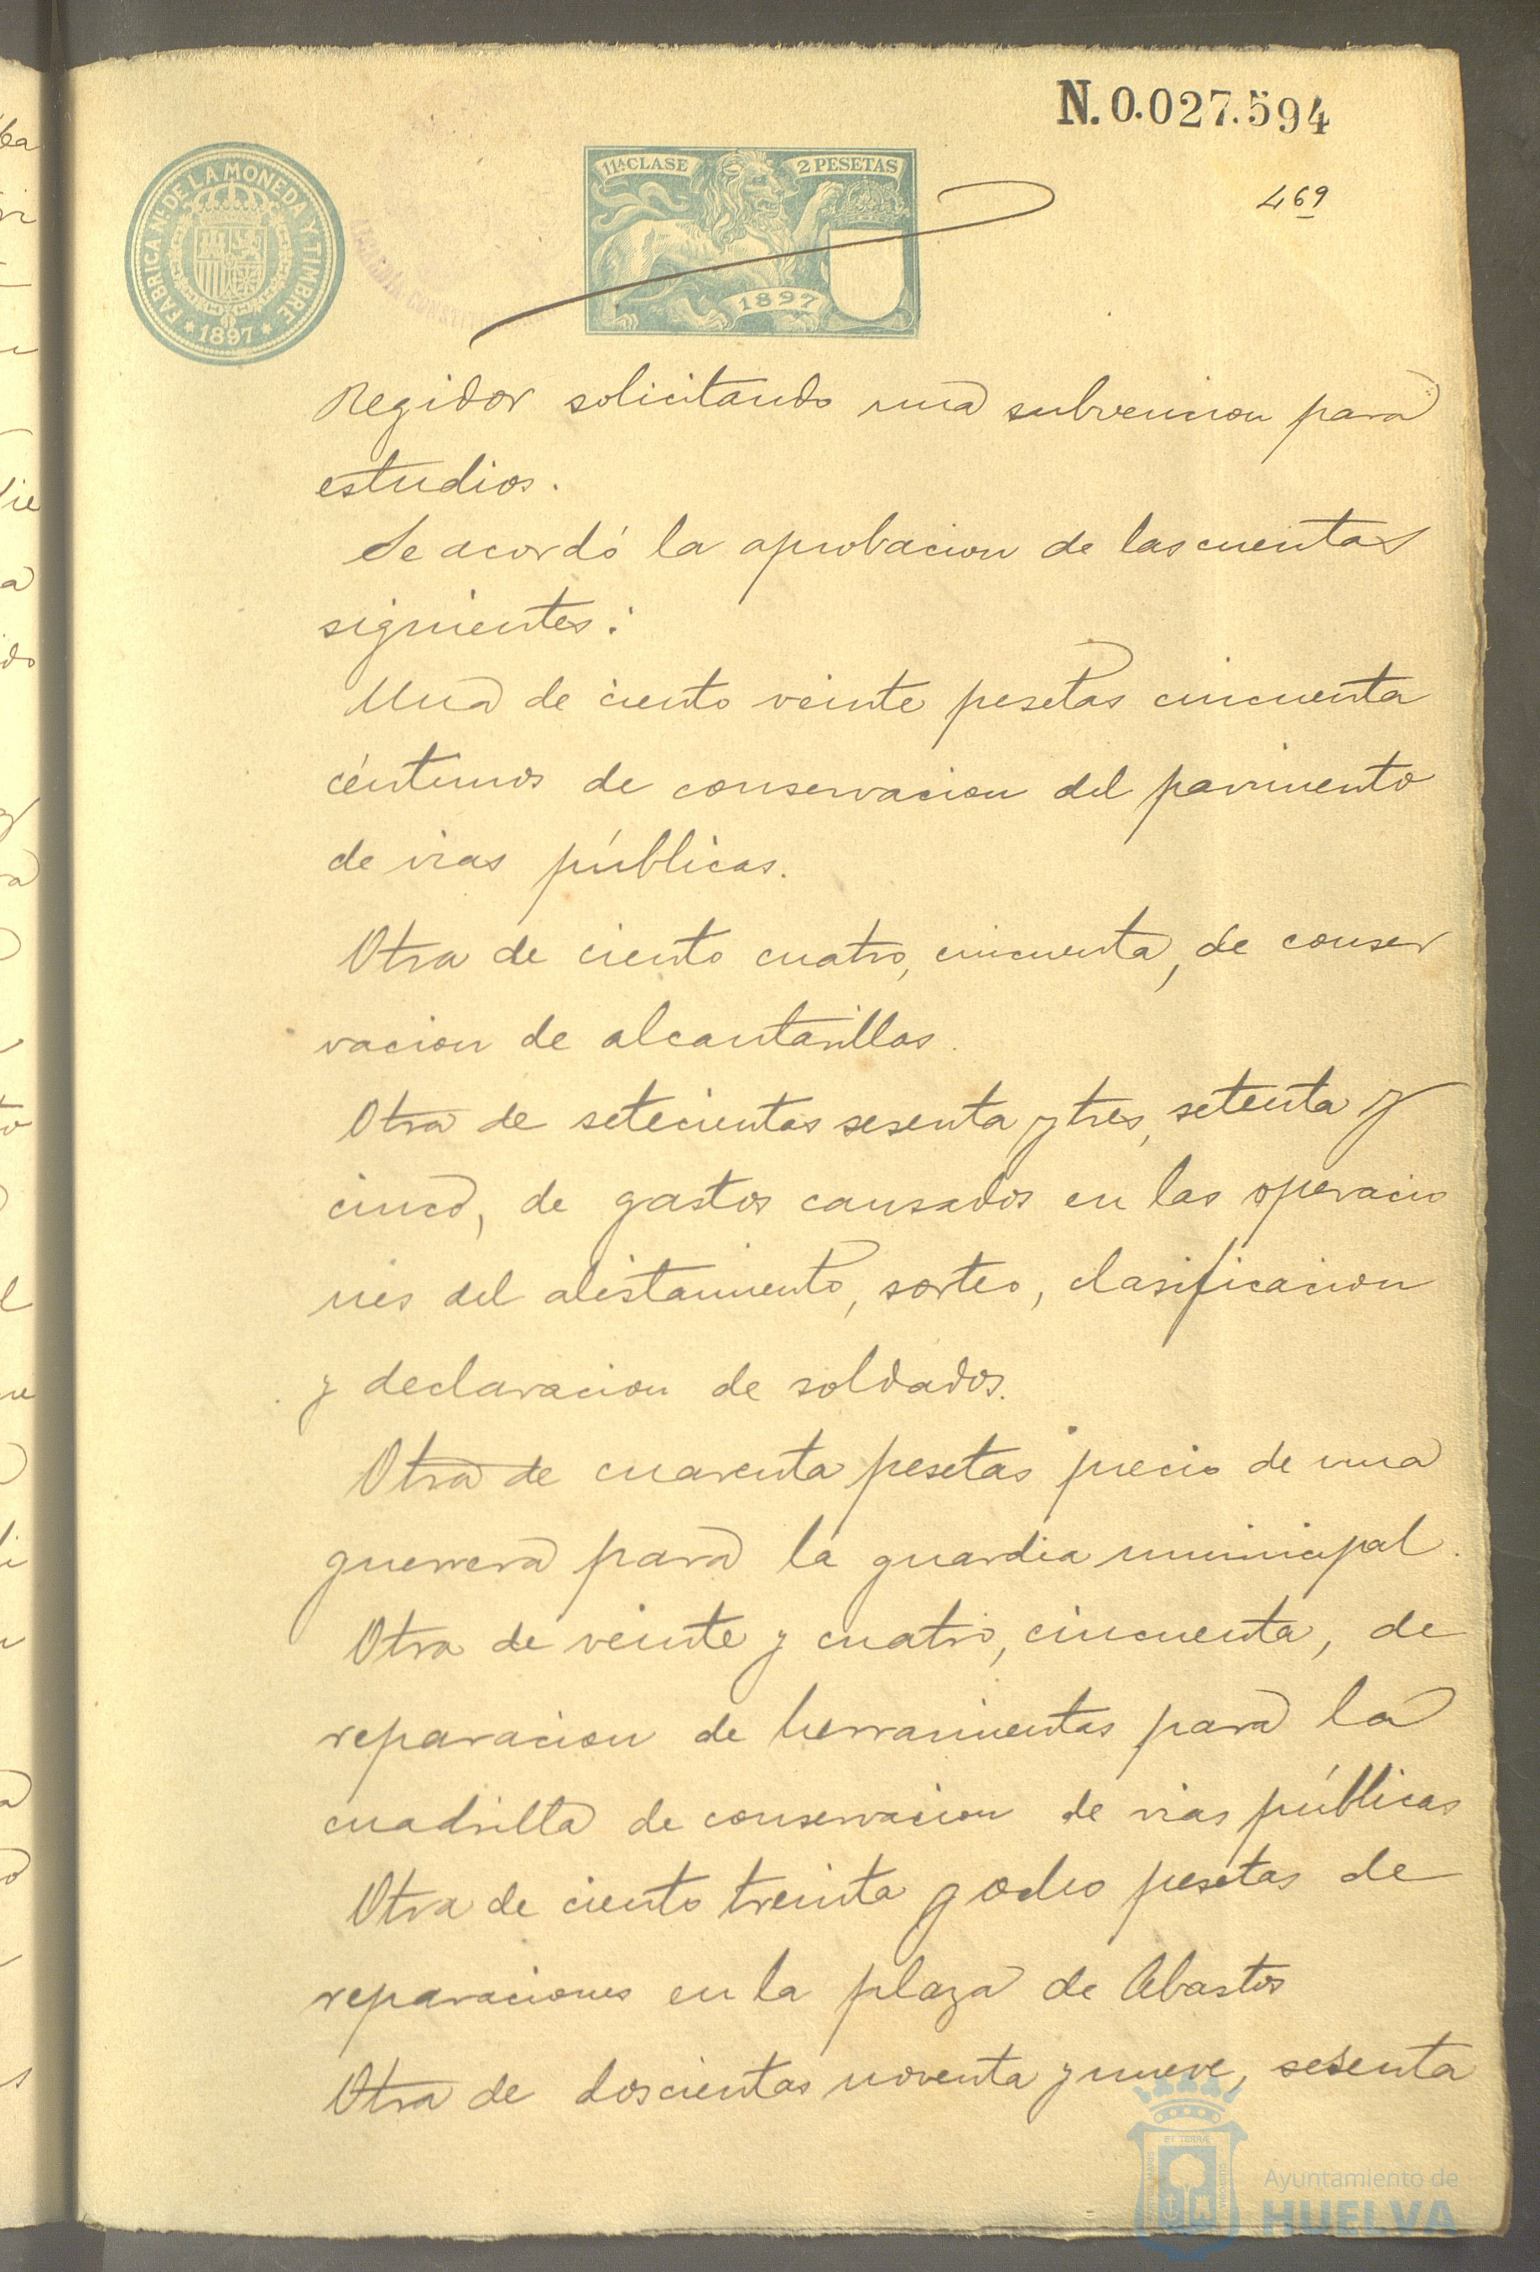 N. 0.027.594
469
FABRICA NL. DE LA MONEDA Y TIMBRE
* 1897 *
ALCALDIA CONSTI
11ª CLASE
2 PESETAS
1897
Regidor solicitando una subvencion para
estudios.
Se acordó la aprobacion de las cuentas
siguientes:
Una de ciento veinte pesetas cincuenta
céntimos de conservacion del pavimento
de vias públicas.
Otra de ciento cuatro, cincuenta, de conser
vacion de alcantarillas.
Otra de setecientas sesenta y tres, setenta y
cinco, de gastos causados en las operacio
nes del alistamiento, sorteo, clasificacion
y declaracion de soldados.
Otra de cuarenta pesetas precio de una
guerrera para la guardia municipal.
Otra de veinte y cuatro, cincuenta, de
reparacion de herramientas para la
cuadrilla de conservacion de vias públicas
Otra de ciento treinta y ocho pesetas de
reparaciones en la plaza de Abastos
Otra de doscientas noventa y nueve, sesenta
Ayuntamiento de
HUELVA